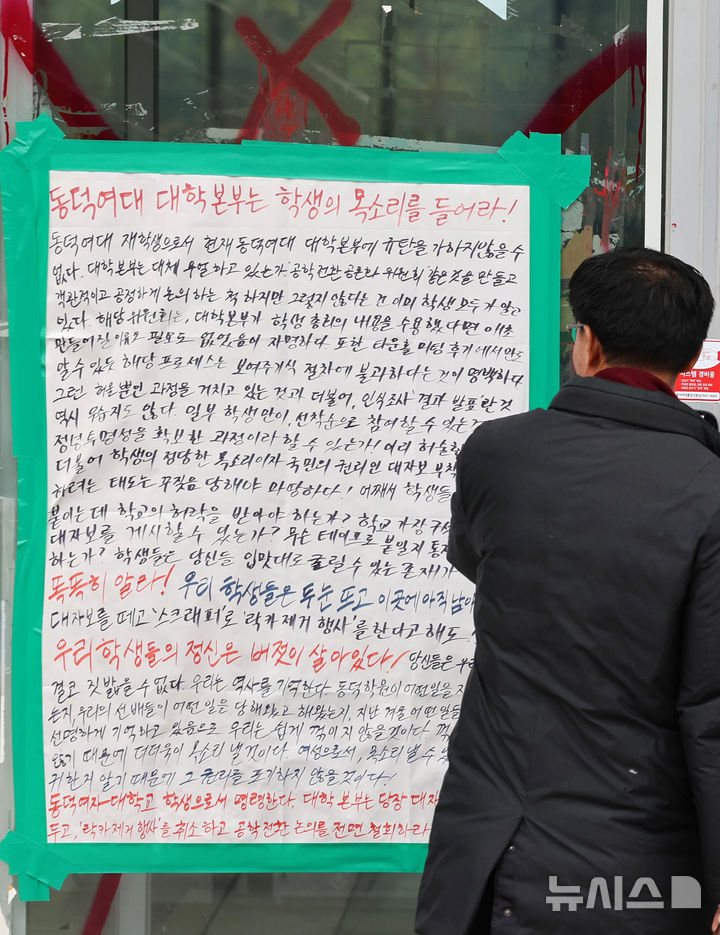 동덕여대 대학본부는 학생의 목소리를 들어라!
동덕여대 재학생으로서 현재 동덕여대 대학본부에 규탄을 가하지않을 수
없다. 대학본부는 대체 무얼 하고 있는가? '공학전환 공론화 위원회' 같은것을 만들고
객관적이고 공정하게 논의 하는 척 하지만 그렇지 않다는 건 이미 학생 모두가 알고
있다. 해당 위원회는, 대학본부가 학생 총회의 내용을 수용했다면 애초
만들어질 이유도 필요도 없었음이 자명하다. 또한 타운홀 미팅 후기에서만도
알 수 있듯 해당 프로세스는 보여주기식 절차에 불과하다는 것이 명백하다.
그런 허울뿐인 과정을 거치고 있는 것과 더불어, 인식조사 결과 발표란 것
역시 우습지도 않다. 일부 학생만이, 선착순으로 참여할 수 있는
정녕 투명성을 확보한 과정이라 할 수 있는가! 이리 허술한
더불어 학생의 정당한 목소리이자 국민의 권리인 대자보 부착
하려는 태도는 꾸짖음 당해야 마땅하다! 어째서 학생들
붙이는 데 학교의 허락을 받아야 하는가? 학교 가장 구석
대자보를 게시할 수 있는가? 무슨 테이프로 붙일지 통제
하는가? 학생들은 당신들 입맛대로 굴릴 수 있는 존재가
똑똑히 알라! 우리 학생들은 두눈 뜨고 이곳에 아직 남아
대자보를 떼고 '스크래퍼'로 '락카제거 행사'를 한다고 해도
우리 학생들의 정신은 버젓이 살아있다! 당신들은 우리
결코 짓밟을 수 없다. 우리는 역사를 기억한다. 동덕학원이 어떤일을 저
는지, 우리의 선배들이 어떤 일을 당해왔고 해왔는지, 지난 겨울 어떤 일들
선명하게 기억하고 있음으로 우리는 쉽게 꺾이지 않을것이다. 꺾
않기 때문에 더더욱이 목소리 낼 것이다. 여성으로서, 목소리 낼 수 있
귀한지 알기 때문에 그 권리를 포기하지 않을 것이다!
동덕여자대학교 학생으로서 명령한다. 대학 본부는 당장 대자
두고, '락카제거 행사'를 취소하고 공학전환 논의를 전면 철회하라
뉴시스